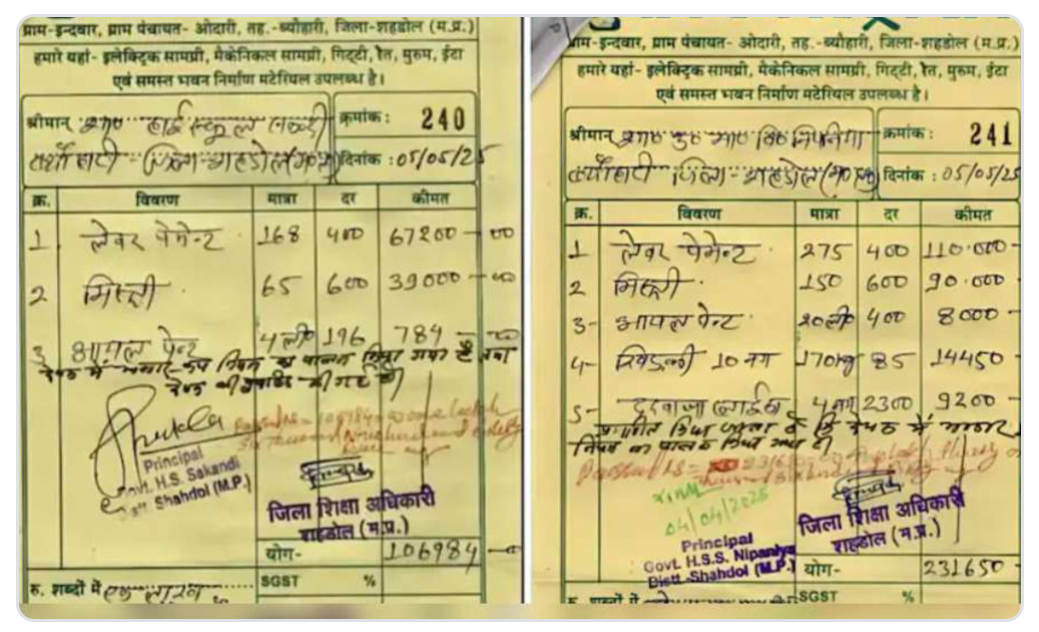 ग्राम-इन्दवार, ग्राम पंचायत- ओदारी, तह.-ब्यौहारी, जिला-शहडोल (म.प्र.)
हमारे यहां- इलेक्ट्रिक सामग्री, मैकेनिकल सामग्री, गिट्टी, रेत, मुरुम, ईंटा
एवं समस्त भवन निर्माण मटेरियल उपलब्ध है।
श्रीमान् शा० हाई स्कूल सकन्दी क्रमांक : 240
जिला-शहडोल (म०प्र०) दिनांक : 05/05/25
क्र. विवरण मात्रा दर कीमत
1 लेबर पेमेन्ट 168 400 67200-00
2 मिस्त्री 65 600 39000-00
3 आयल पेन्ट 4 ली० 196 784-00
Principal
Govt. H.S. Sakandi
Distt. Shahdol (M.P.)
जिला शिक्षा अधिकारी
शहडोल (म.प्र.)
योग- 106984-00
रु. शब्दों में एक लाख
SGST %
ग्राम-इन्दवार, ग्राम पंचायत- ओदारी, तह.-ब्यौहारी, जिला-शहडोल (म.प्र.)
हमारे यहां- इलेक्ट्रिक सामग्री, मैकेनिकल सामग्री, गिट्टी, रेत, मुरुम, ईंटा
एवं समस्त भवन निर्माण मटेरियल उपलब्ध है।
श्रीमान् शा० उ० मा० वि० निपनिया क्रमांक : 241
जिला-शहडोल (म०प्र०) दिनांक : 05/05/25
क्र. विवरण मात्रा दर कीमत
1 लेबर पेमेन्ट 275 400 110.000-
2 मिस्त्री 150 600 90.000-
3- आयल पेन्ट 20ली० 400 8000-
4- खिड़की 10 नग 170kg 85 14450-
5- दरवाजा 4 नग 2300 9200-
04/04/2025
Principal
Govt. H.S.S. Nipaniya
Distt-Shahdol (M.P.)
जिला शिक्षा अधिकारी
शहडोल (म.प्र.)
योग- 231650-
SGST %